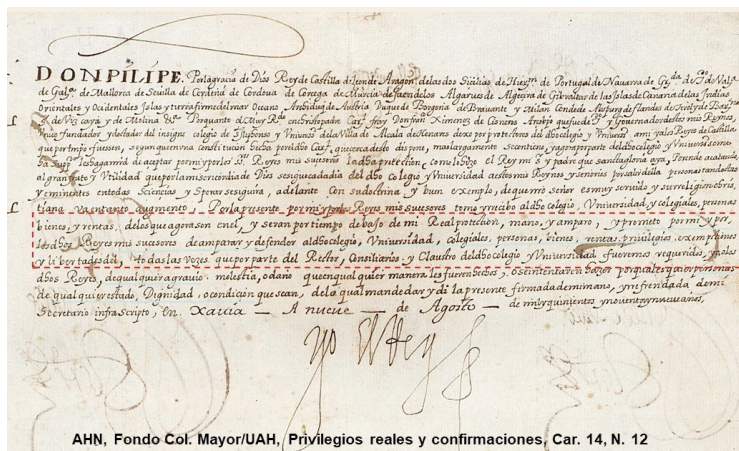 DON PILIPE. Por la gracia de Dios Rey de Castilla de Leon de Aragon, de las dos Sicilias de Hierlm. de Portugal de Navarra de Grda. de To. de Vala.
de Gala. de Mallorca de Sevilla de Cerdeña de Cordova de Corcega de Murcia de Jaen de los Algarves de Algezira de Gibraltar de las Islas de Canaria de las Indias
Orientales y Ocidentales Islas y tierra firme del mar Oceano Archiduq de Austria Duque de Borgoña de Bravante y Milan Conde de Auspurg de flandes de Tirol y Barna.
Sr. de Vizcaya y de Molina &a. Por quanto el Muy Rdo. en christo padre Carl. fray Don franco Ximenez de Cisneros Arcobpo. que fue de To. y Governador destos mis Reynos,
unico fundador y dotador del insigne colegio de S. Ylefonso y Universidad de la Villa de Alcala de Henares dexo por protectores del dho colegio y Universd. a mi y a los Reyes de Castilla
que por tiempo fuessen, segun que en una constitucion hecha por el dho Carl. que cerca desto dispone, mas largamente se contiene, y agora por parte del dho colegio y Universd. se me
ha suppdo. les haga mrd. de aceptar por mi y por los SSres. Reyes mis sucesores la dha protection, como lo hizo el Rey mi Sr. y padre que sancta gloria aya, Yo tenido acatando,
al gran fruto y Utilidad que por la misericordia de Dios se sigue cada dia del dho colegio y Universidad a estos mis Reynos y señorios por salir de ella personas tan doctas
y eminentes en todas Sciencias, y Sperar se siguira, adelante con su doctrina, y buen exemplo, de que nro señor es muy servido y su religion chris_
tiana va en tanto augmento. Por la presente por mi y por los Reyes mis sucesores tomo y recibo al dho colegio, Universidad, y colegiales, personas
bienes, y rentas, de los que agora son en el, y seran por tiempo debaxo de mi Real protection, mano, y amparo, y prometo por mi y por
los dhos Reyes mis sucesores de amparar y defender al dho colegio, Universidad, colegiales, personas, bienes, rentas, privilegios exempciones
y libertades del, todas las vezes que por parte del Rector, Consiliarios y Claustro del dho colegio y Universidad fueremos requeridos, yo o los
dhos Reyes, de qualquier agravio molestia, o daño que en qualquier manera les fueren hechos, o se intentaren hazer por qualesquier personas
de qualquier estado, Dignidad, o condicion que sean, de lo qual mande dar y di la presente firmada de mi mano, y refrendada de mi
Secretario infrascripto, En Xavia — A nueve — de Agosto — de mil y quinientos y noventa y nueve años,
Yo el Rey
AHN, Fondo Col. Mayor/UAH, Privilegios reales y confirmaciones, Car. 14, N. 12